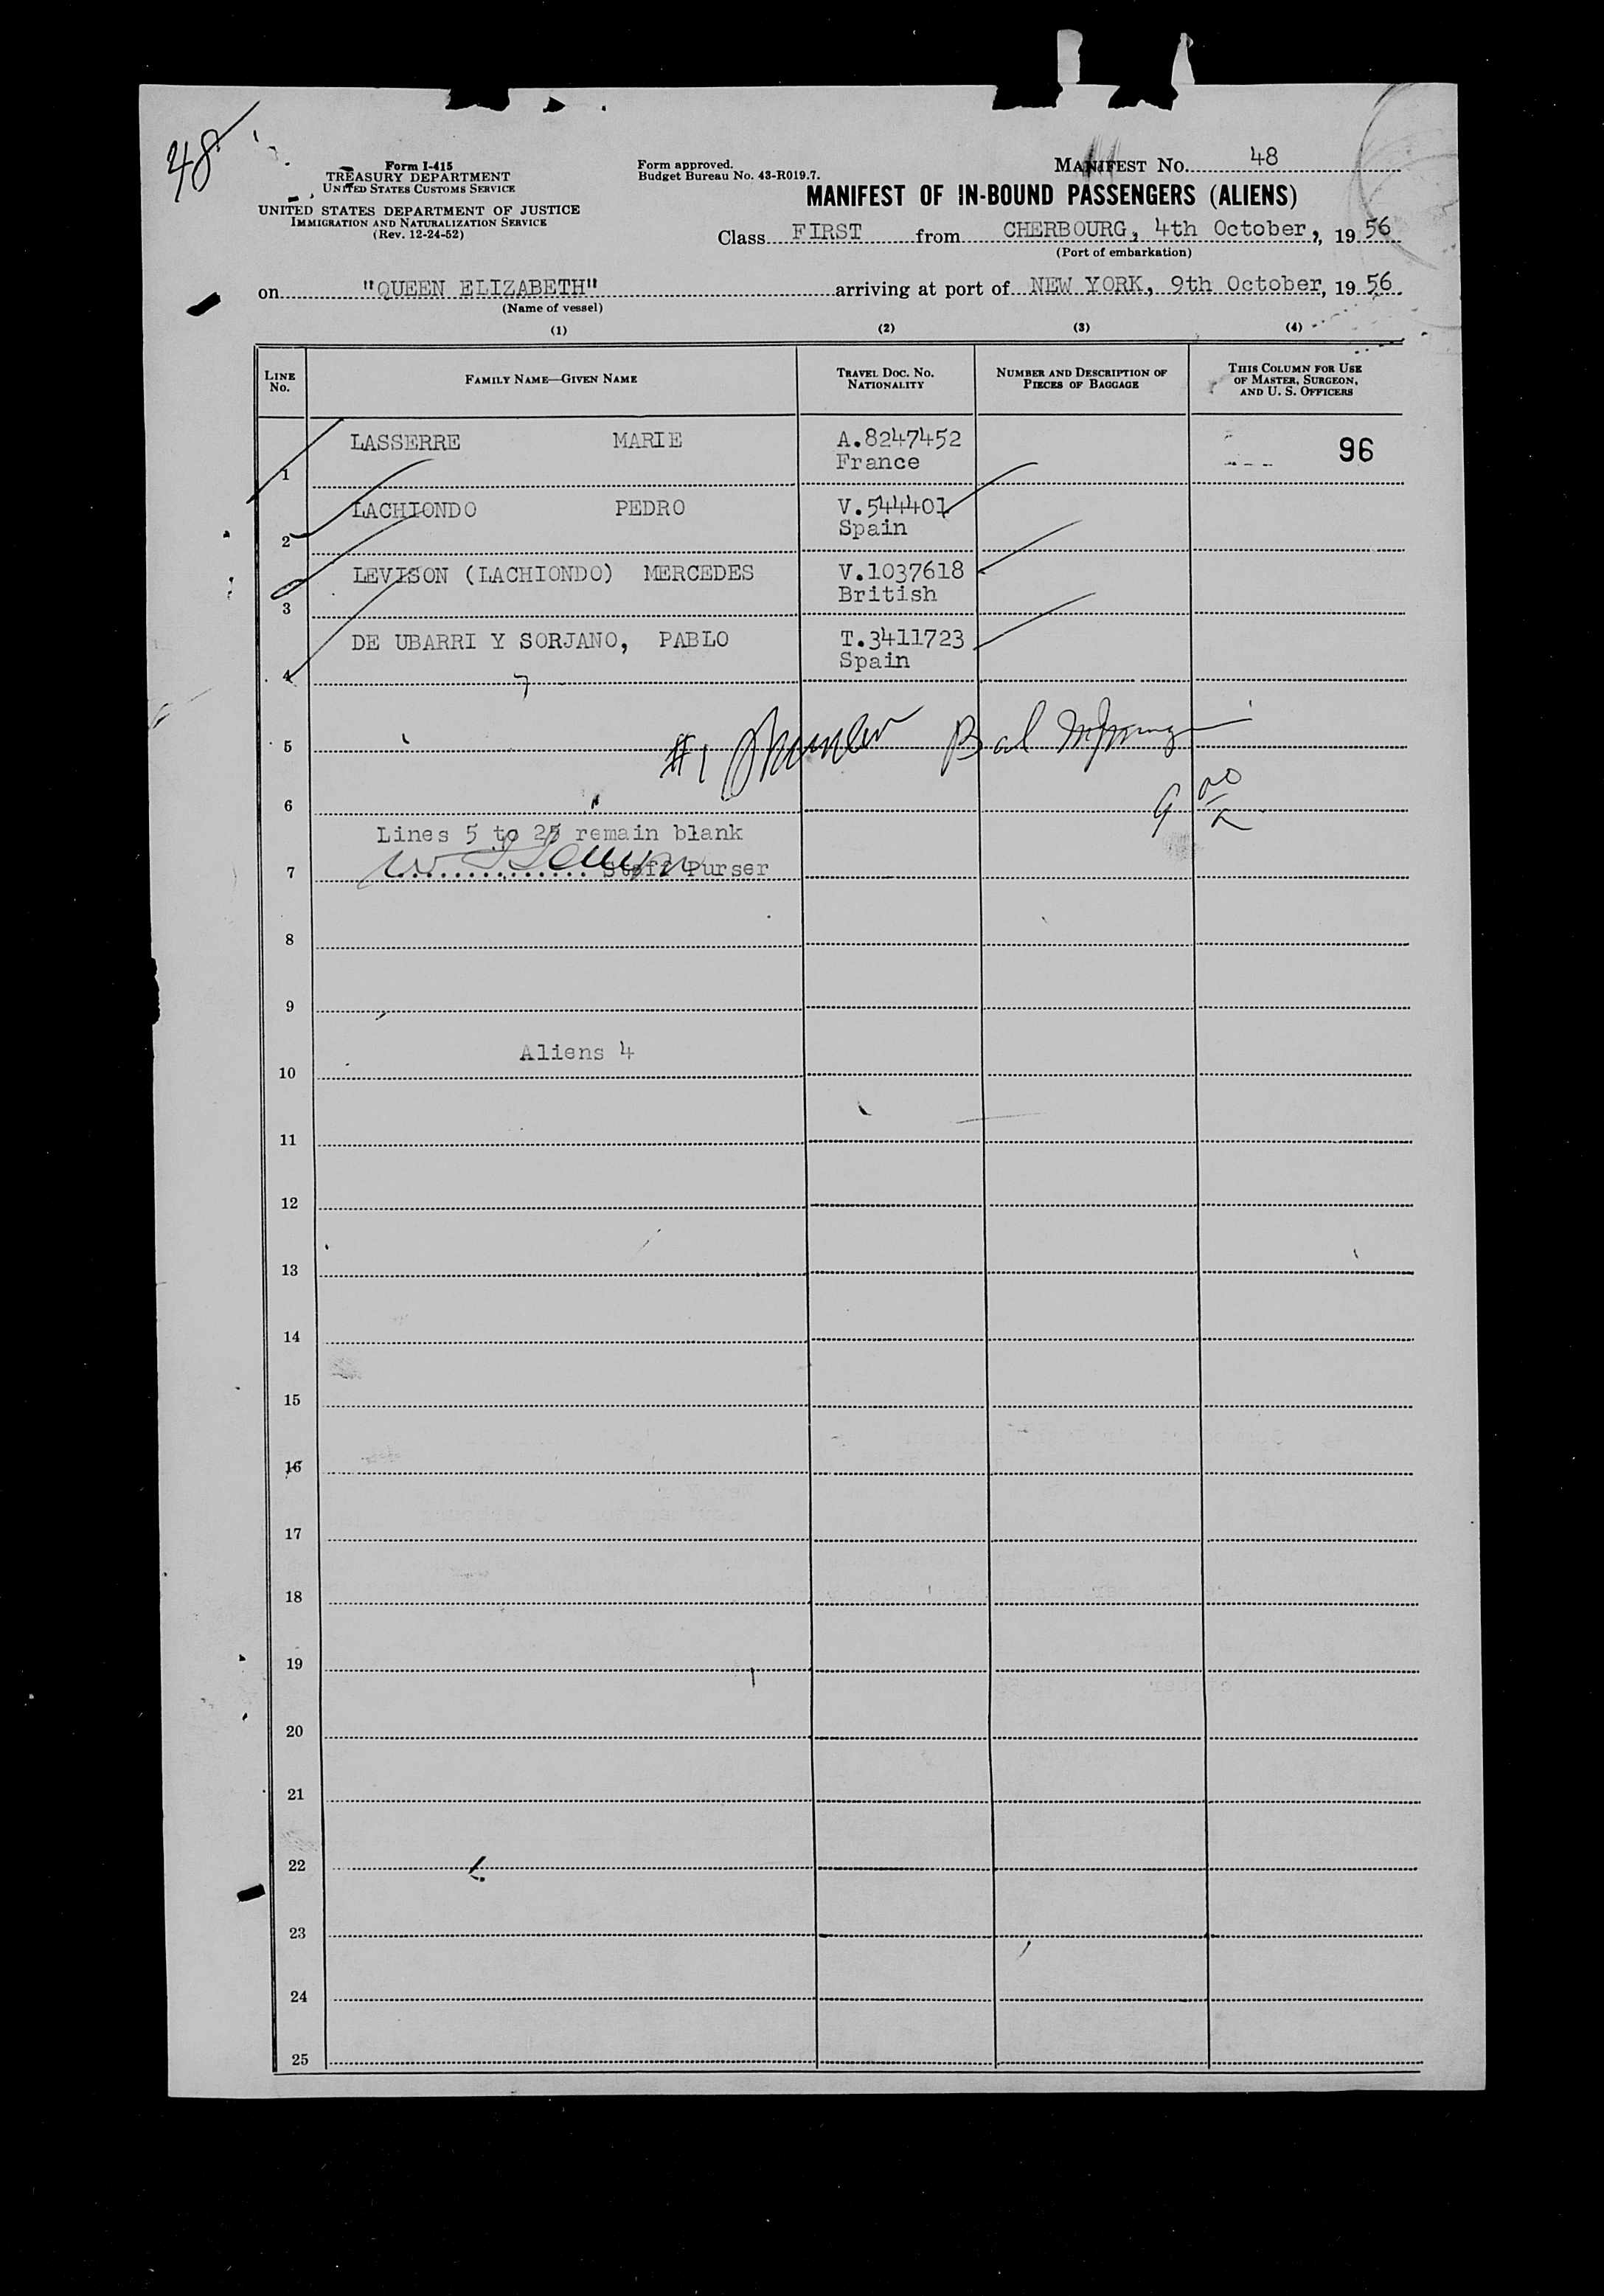 48
Form I-415
TREASURY DEPARTMENT
UNITED STATES CUSTOMS SERVICE
UNITED STATES DEPARTMENT OF JUSTICE
IMMIGRATION AND NATURALIZATION SERVICE
(Rev. 12-24-52)
Form approved.
Budget Bureau No. 43-R019.7.
MANIFEST No. 48
MANIFEST OF IN-BOUND PASSENGERS (ALIENS)
Class FIRST from CHERBOURG, 4th October, 19 56
(Port of embarkation)
on "QUEEN ELIZABETH" arriving at port of NEW YORK, 9th October, 19 56
(Name of vessel)
(1) (2) (3) (4)
LINE No. FAMILY NAME—GIVEN NAME TRAVEL DOC. No. NATIONALITY NUMBER AND DESCRIPTION OF PIECES OF BAGGAGE THIS COLUMN FOR USE OF MASTER, SURGEON, AND U. S. OFFICERS
1 LASSERRE MARIE A.8247452 France 96
2 LACHIONDO PEDRO V.544401 Spain
3 LEVISON (LACHIONDO) MERCEDES V.1037618 British
4 DE UBARRI Y SORJANO, PABLO T.3411723 Spain
5 #1 Bal
6
Lines 5 to 25 remain blank
7 Staff Purser
8
9
Aliens 4
10
11
12
13
14
15
16
17
18
19
20
21
22
23
24
25